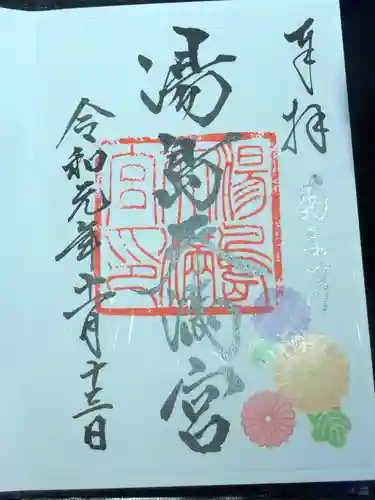 奉拝
湯島天満宮
湯島
天満
宮印
令和元年十一月十三日